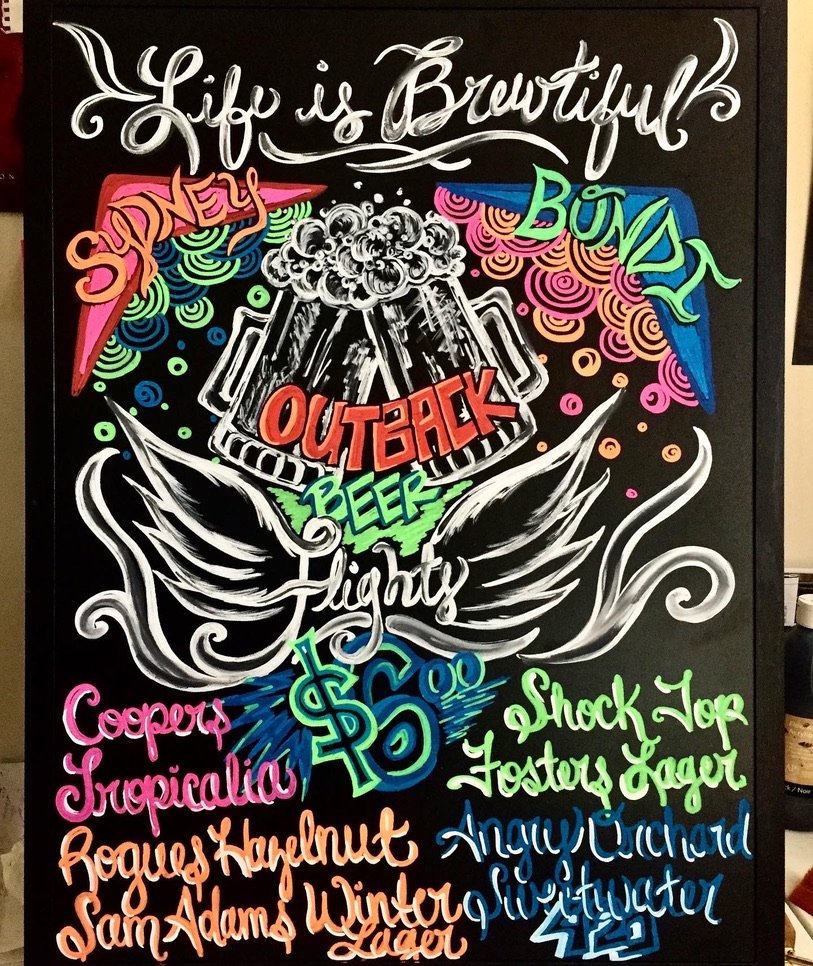 Life is Brewtiful
SYDNEY
BONDI
OUTBACK
BEER
Flights
$6.00
Coopers
Tropicalia
Rogues Hazelnut
Sam Adams Winter
Lager
Shock Top
Fosters Lager
Angry Orchard
Sweetwater
420